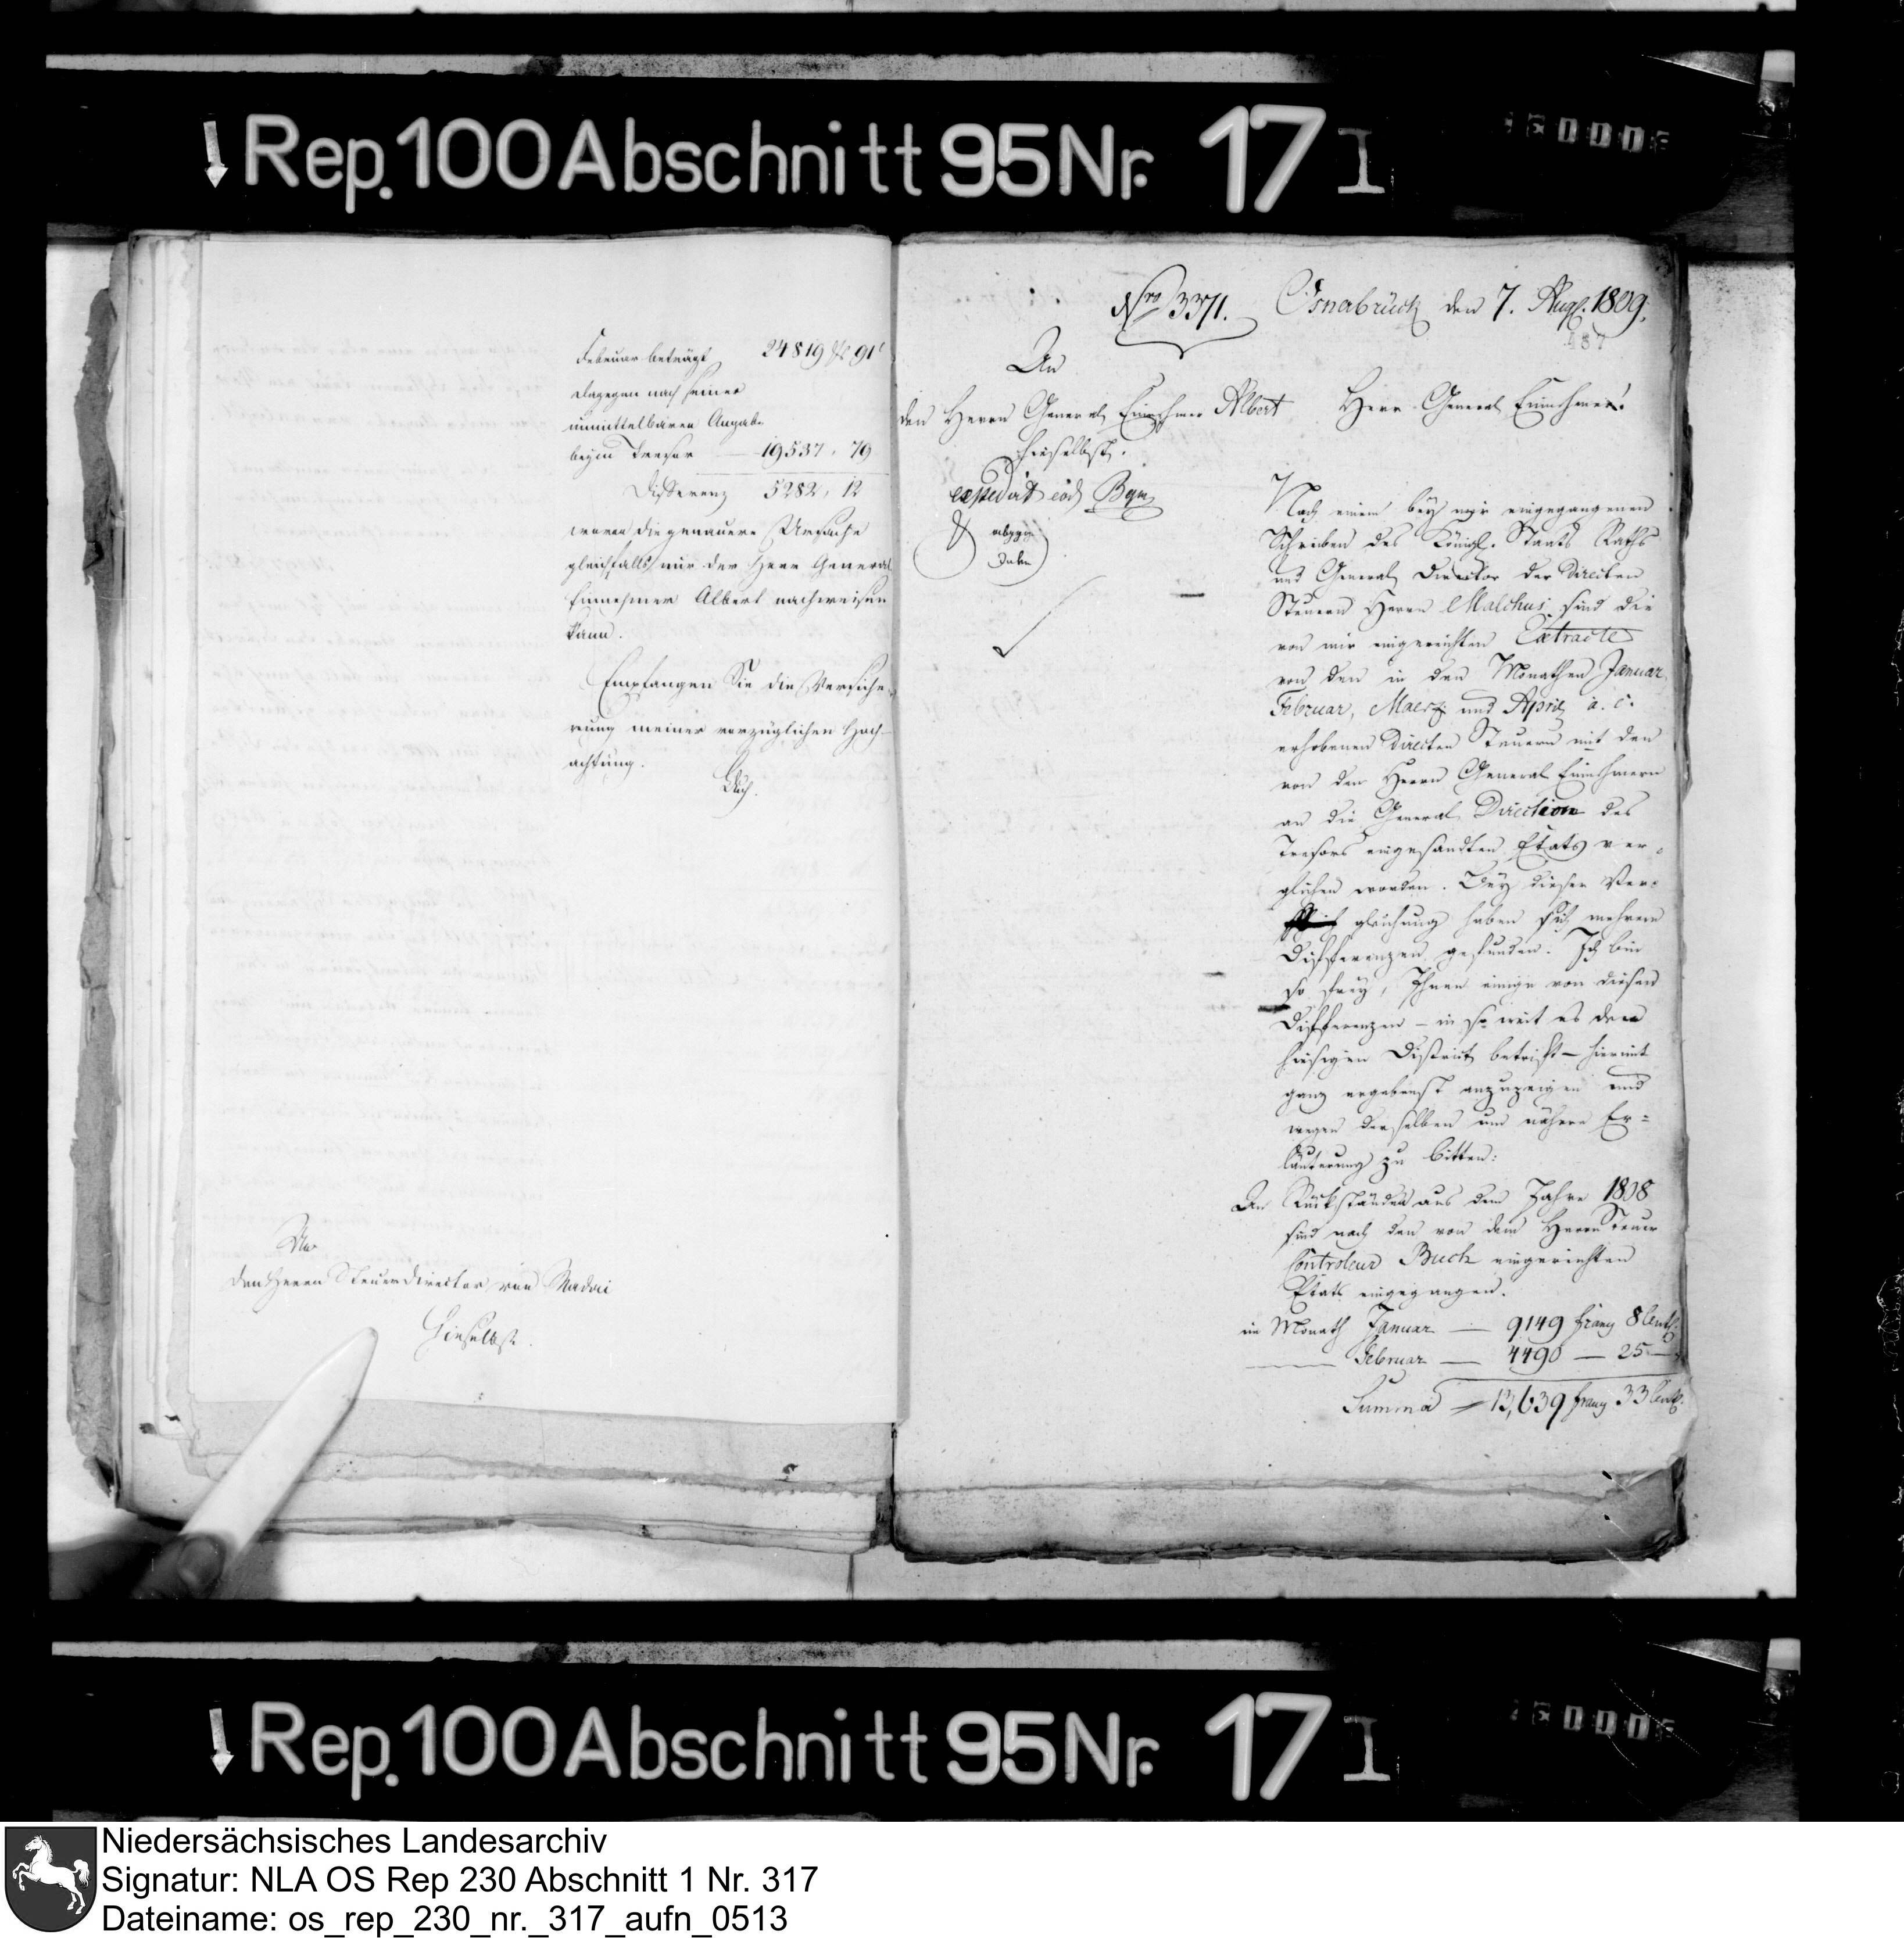 Rep. 100 Abschnitt 95 Nr. 17 I
Februar beträgt 24819 fr 91 c
dagegen nach seiner
unmittelbaren Angabe
beym Tresor — 19537. 79
Differenz 5282. 12
wovon die genauere Ursache
gleichfalls nur der Herr General
Einnehmer Albert nachweisen
kann.
Empfangen Sie die Versiche-
rung meiner vorzüglichen Hoch-
achtung.
Buch.
An
den Herrn Steuerdirector von Madai
Hieselbst.
Nro 3371. Osnabrück den 7. Aug. 1809.
487
An
den Herrn General Einnehmer Albert
hieselbst.
expedirt eod
Herr General Einnehmer!
Nach einem bey mir eingegangenen
Schreiben des Königl. Staats Raths
und General Director der directen
Steuern Herrn Malchus sind die
von mir eingereichten Extracte
von den in den Monathen Januar,
Februar, Maerz und April a. c.
erhobenen directen Steuern mit den
von den Herrn General Einnehmern
an die General Direction des
Tresors eingesandten Etats ver-
glichen worden. Bey dieser Ver-
gleichung haben sich mehrere
Differenzen gefunden. Ich bin
so frey, Ihnen einige von diesen
Differenzen – in so weit es den
hiesigen District betrifft – hiermit
ganz ergebenst anzuzeigen und
wegen derselben um nähere Er=
läuterung zu bitten:
An Rückständen aus dem Jahre 1808
sind nach den von dem Herrn Steuer
Controleur Buch eingereichten
Etats eingegangen.
im Monath Januar — 9149 Franz 8 Cent.
Februar — 4490 — 25 —
Summa = 13,639 Franz 33 Cent.
Rep. 100 Abschnitt 95 Nr. 17 I
Niedersächsisches Landesarchiv
Signatur: NLA OS Rep 230 Abschnitt 1 Nr. 317
Dateiname: os_rep_230_nr._317_aufn_0513